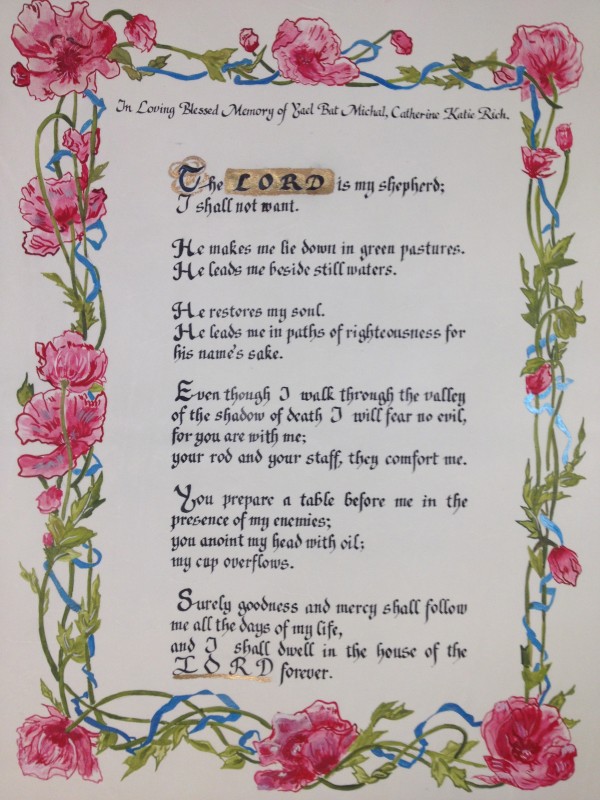 In Loving Blessed Memory of Yael Bat Michal, Catherine Katie Rich.
The LORD is my shepherd;
I shall not want.
He makes me lie down in green pastures.
He leads me beside still waters.
He restores my soul.
He leads me in paths of righteousness for
his name's sake.
Even though I walk through the valley
of the shadow of death I will fear no evil,
for you are with me;
your rod and your staff, they comfort me.
You prepare a table before me in the
presence of my enemies;
you anoint my head with oil;
my cup overflows.
Surely goodness and mercy shall follow
me all the days of my life,
and I shall dwell in the house of the
LORD forever.